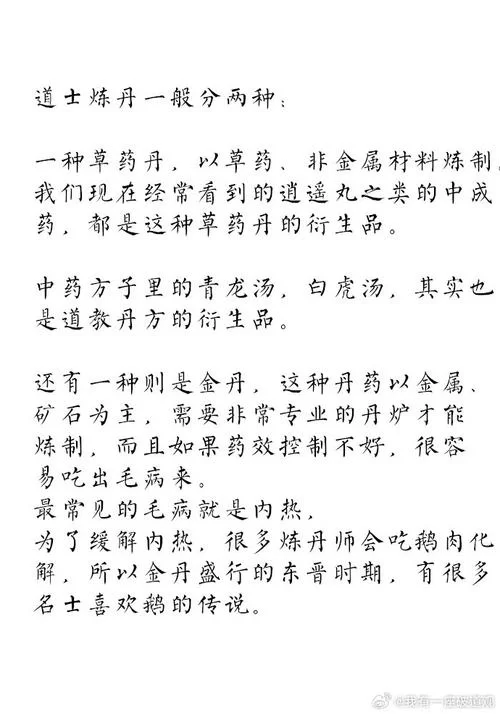 道士炼丹一般分两种：
一种草药丹，以草药、非金属材料炼制，
我们现在经常看到的逍遥丸之类的中成
药，都是这种草药丹的衍生品。
中药方子里的青龙汤，白虎汤，其实也
是道教丹方的衍生品。
还有一种则是金丹，这种丹药以金属、
矿石为主，需要非常专业的丹炉才能
炼制，而且如果药效控制不好，很容
易吃出毛病来。
最常见的毛病就是内热，
为了缓解内热，很多炼丹师会吃鹅肉化
解，所以金丹盛行的东晋时期，有很多
名士喜欢鹅的传说。
@我有一座破道观